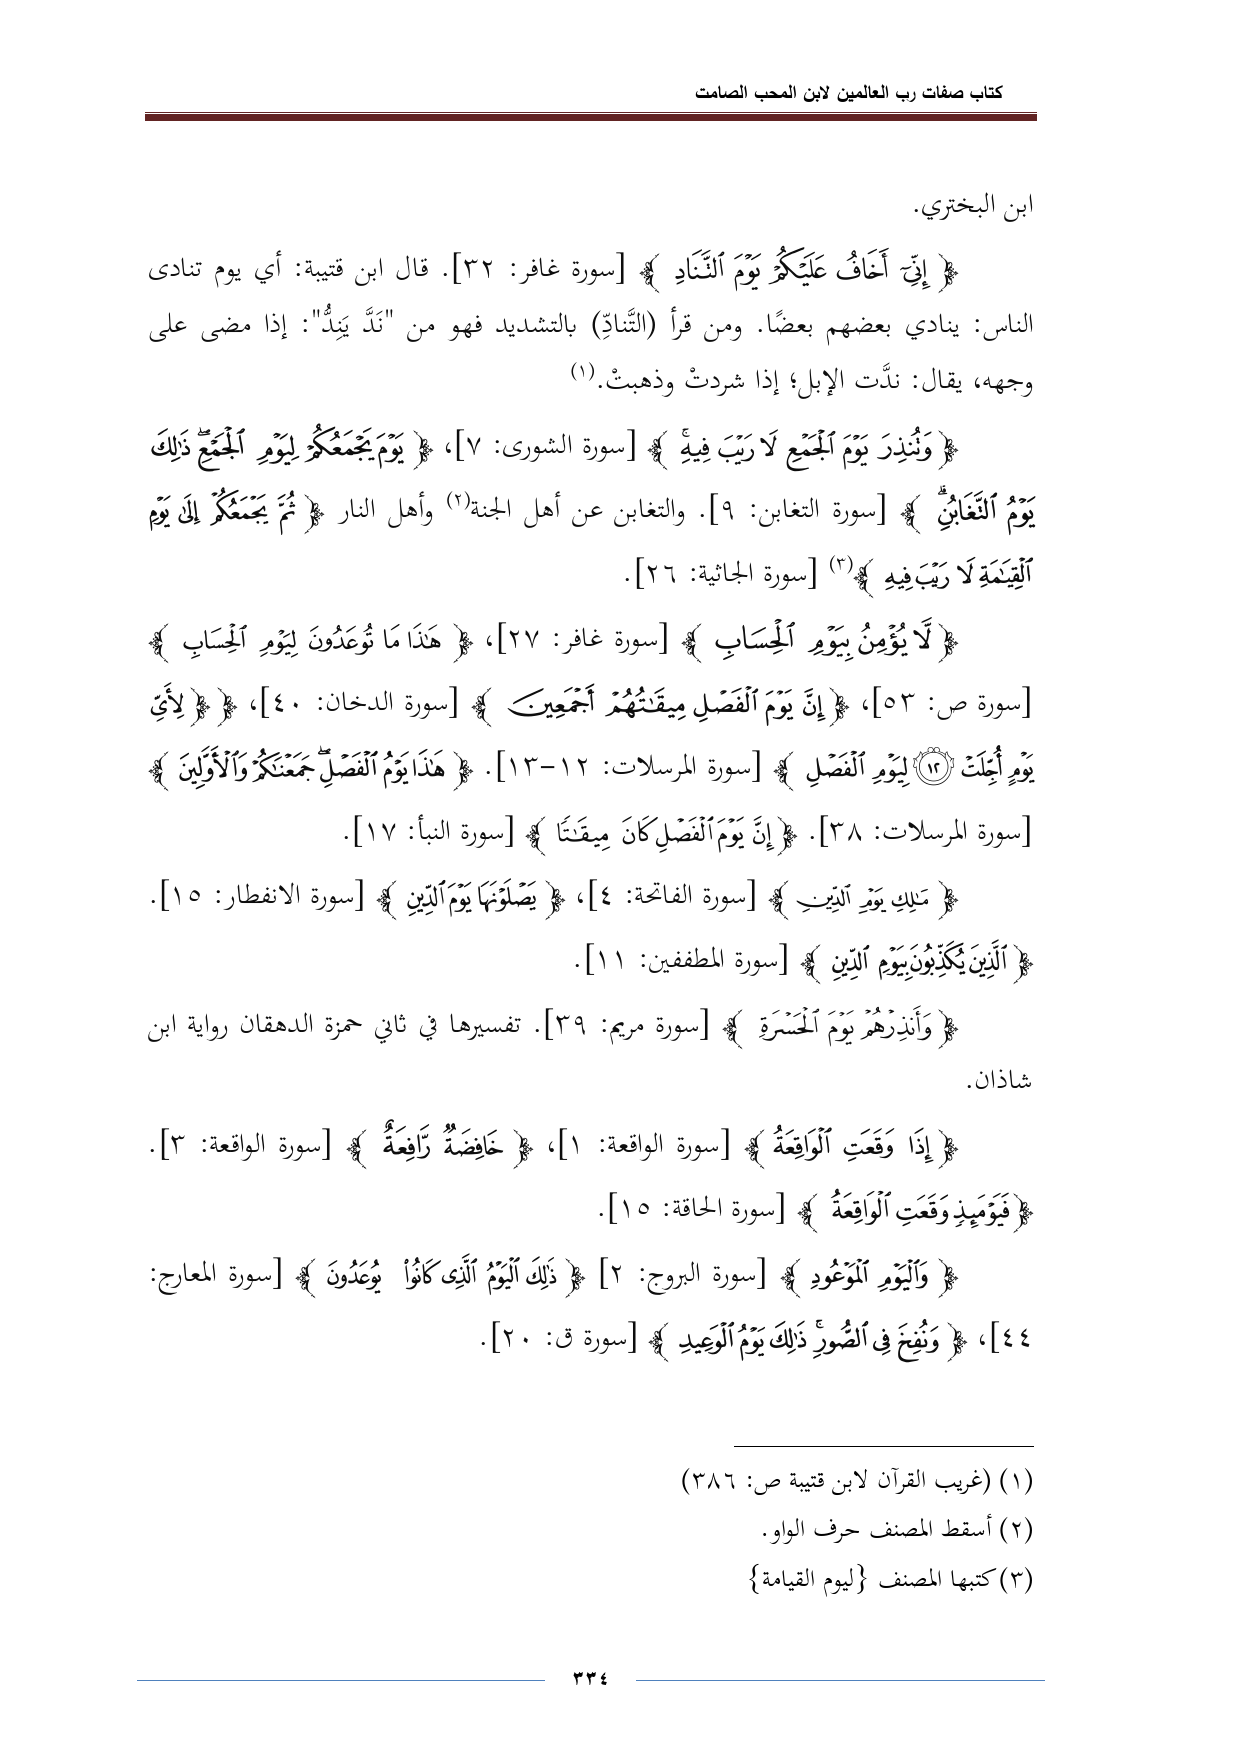 كتاب صفات رب العالمين لابن المحب الصامت
ابن البختري.
﴿ إِنِّىٓ أَخَافُ عَلَيْكُمْ يَوْمَ ٱلتَّنَادِ ﴾ [سورة غافر: ٣٢]. قال ابن قتيبة: أي يوم تنادى
الناس: ينادي بعضهم بعضًا. ومن قرأ (التَّنادِّ) بالتشديد فهو من "نَدَّ يَنِدُّ": إذا مضى على
وجهه، يقال: ندَّت الإبل؛ إذا شردتْ وذهبتْ.(١)
﴿ وَتُنذِرَ يَوْمَ ٱلْجَمْعِ لَا رَيْبَ فِيهِ ۚ ﴾ [سورة الشورى: ٧]، ﴿ يَوْمَ يَجْمَعُكُمْ لِيَوْمِ ٱلْجَمْعِ ۖ ذَٰلِكَ
يَوْمُ ٱلتَّغَابُنِ ۗ ﴾ [سورة التغابن: ٩]. والتغابن عن أهل الجنة(٢) وأهل النار ﴿ ثُمَّ يَجْمَعُكُمْ إِلَىٰ يَوْمِ
ٱلْقِيَـٰمَةِ لَا رَيْبَ فِيهِ ﴾(٣) [سورة الجاثية: ٢٦].
﴿ لَّا يُؤْمِنُ بِيَوْمِ ٱلْحِسَابِ ﴾ [سورة غافر: ٢٧]، ﴿ هَـٰذَا مَا تُوعَدُونَ لِيَوْمِ ٱلْحِسَابِ ﴾
[سورة ص: ٥٣]، ﴿ إِنَّ يَوْمَ ٱلْفَصْلِ مِيقَـٰتُهُمْ أَجْمَعِينَ ﴾ [سورة الدخان: ٤٠]، ﴿ ﴿ لِأَىِّ
يَوْمٍ أُجِّلَتْ ۝١٢ لِيَوْمِ ٱلْفَصْلِ ﴾ [سورة المرسلات: ١٢-١٣]. ﴿ هَـٰذَا يَوْمُ ٱلْفَصْلِ ۖ جَمَعْنَـٰكُمْ وَٱلْأَوَّلِينَ ﴾
[سورة المرسلات: ٣٨]. ﴿ إِنَّ يَوْمَ ٱلْفَصْلِ كَانَ مِيقَـٰتًا ﴾ [سورة النبأ: ١٧].
﴿ مَـٰلِكِ يَوْمِ ٱلدِّينِ ﴾ [سورة الفاتحة: ٤]، ﴿ يَصْلَوْنَهَا يَوْمَ ٱلدِّينِ ﴾ [سورة الانفطار: ١٥].
﴿ ٱلَّذِينَ يُكَذِّبُونَ بِيَوْمِ ٱلدِّينِ ﴾ [سورة المطففين: ١١].
﴿ وَأَنذِرْهُمْ يَوْمَ ٱلْحَسْرَةِ ﴾ [سورة مريم: ٣٩]. تفسيرها في ثاني حمزة الدهقان رواية ابن
شاذان.
﴿ إِذَا وَقَعَتِ ٱلْوَاقِعَةُ ﴾ [سورة الواقعة: ١]، ﴿ خَافِضَةٌ رَّافِعَةٌ ﴾ [سورة الواقعة: ٣].
﴿ فَيَوْمَئِذٍ وَقَعَتِ ٱلْوَاقِعَةُ ﴾ [سورة الحاقة: ١٥].
﴿ وَٱلْيَوْمِ ٱلْمَوْعُودِ ﴾ [سورة البروج: ٢] ﴿ ذَٰلِكَ ٱلْيَوْمُ ٱلَّذِى كَانُوا۟ يُوعَدُونَ ﴾ [سورة المعارج:
٤٤]، ﴿ وَنُفِخَ فِى ٱلصُّورِ ۚ ذَٰلِكَ يَوْمُ ٱلْوَعِيدِ ﴾ [سورة ق: ٢٠].
(١) (غريب القرآن لابن قتيبة ص: ٣٨٦)
(٢) أسقط المصنف حرف الواو.
(٣) كتبها المصنف {ليوم القيامة}
٣٣٤